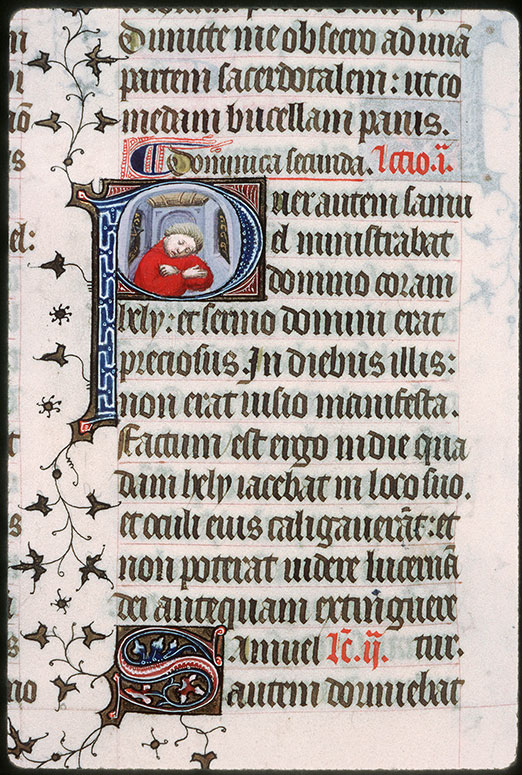 Dimitte me obsecro ad unā
partem sacerdotalem: ut co
medam bucellam panis.
Dominica secunda. Lctio .i.
Puer autem samu
el ministrabat
domino coram
hely: et sermo domini erat
preciosus. In diebus illis:
non erat uisio manifesta.
Factum est ergo in die qua
dam hely iacebat in loco suo.
et oculi eius caligauerāt: et
non poterat uidere lucernā
dei antequam extinguere
Samuel Lc̄. ij. tur.
autem dormiebat